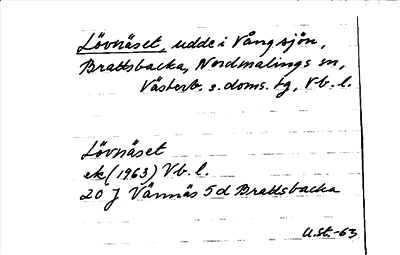 Lövnäset, udde i Vångsjön,
Brattsbacka, Nordmalings sn,
Västerb. s. doms. tg, Vb. l.
Lövnäset
ek (1963) Vb. l.
20 J Vännäs 5 d Brattsbacka
U.St.-63